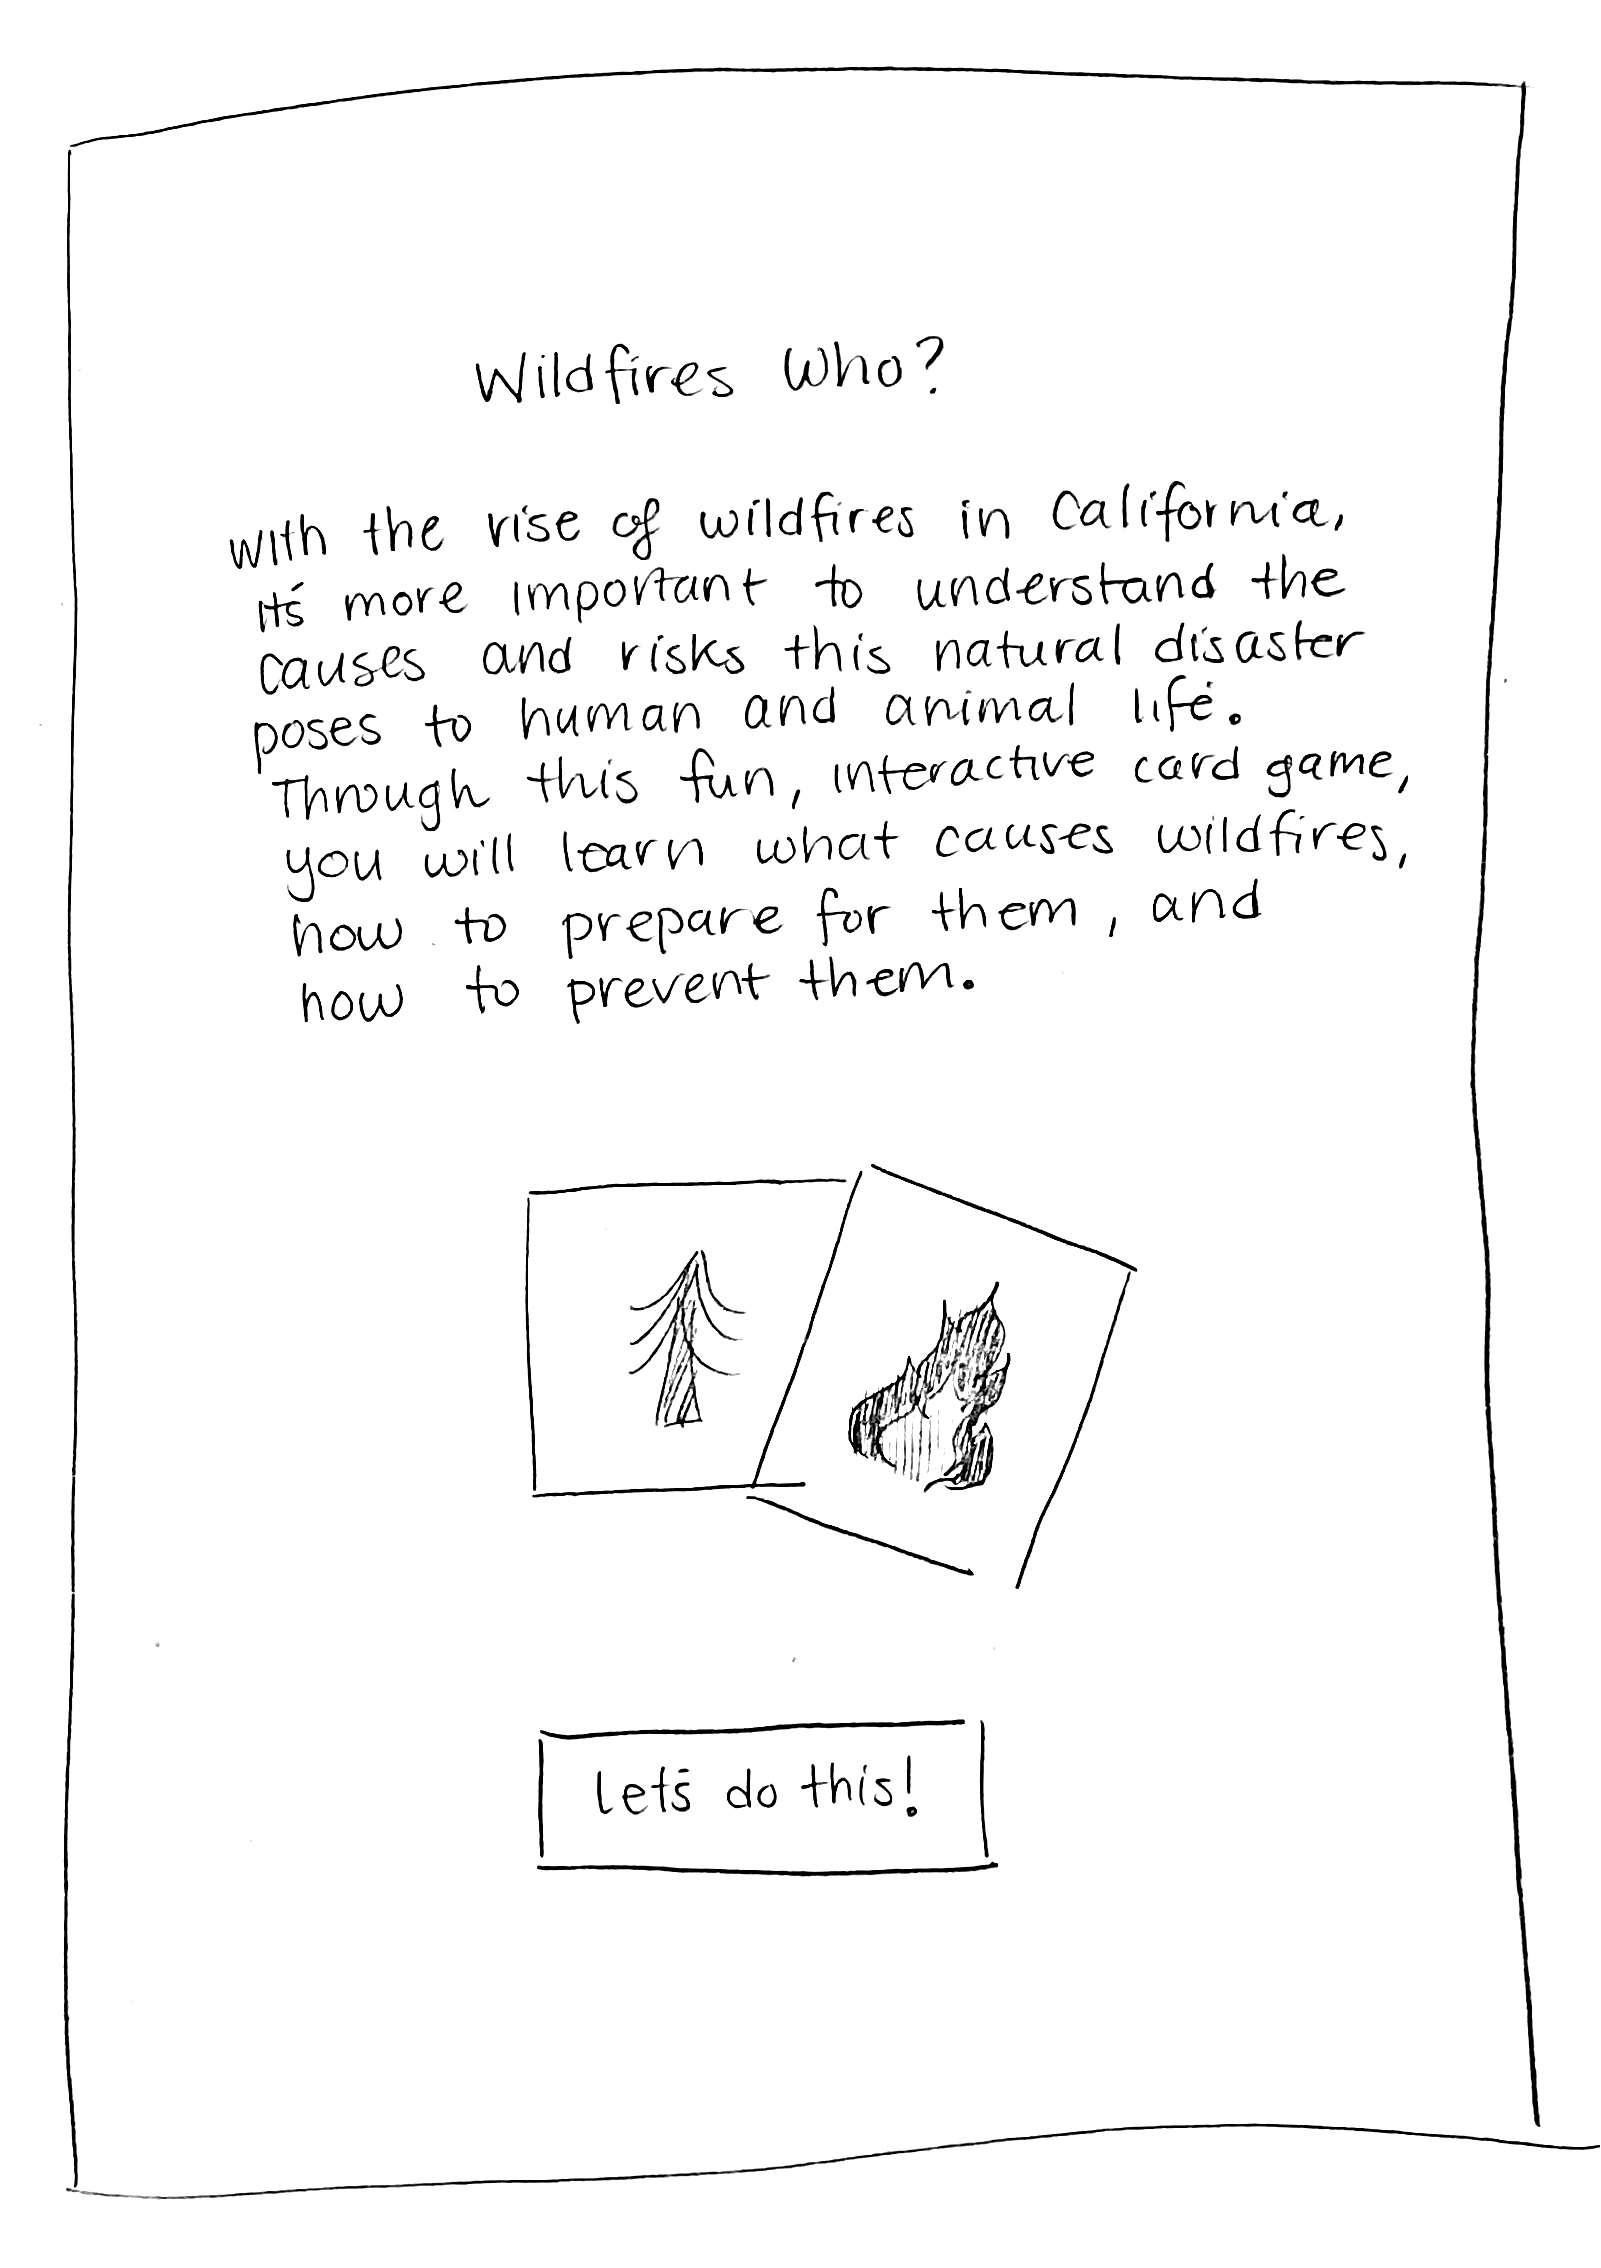 Wildfires Who?
With the rise of wildfires in California,
it's more important to understand the
causes and risks this natural disaster
poses to human and animal life.
Through this fun, interactive card game,
you will learn what causes wildfires,
how to prepare for them, and
how to prevent them.
let's do this!